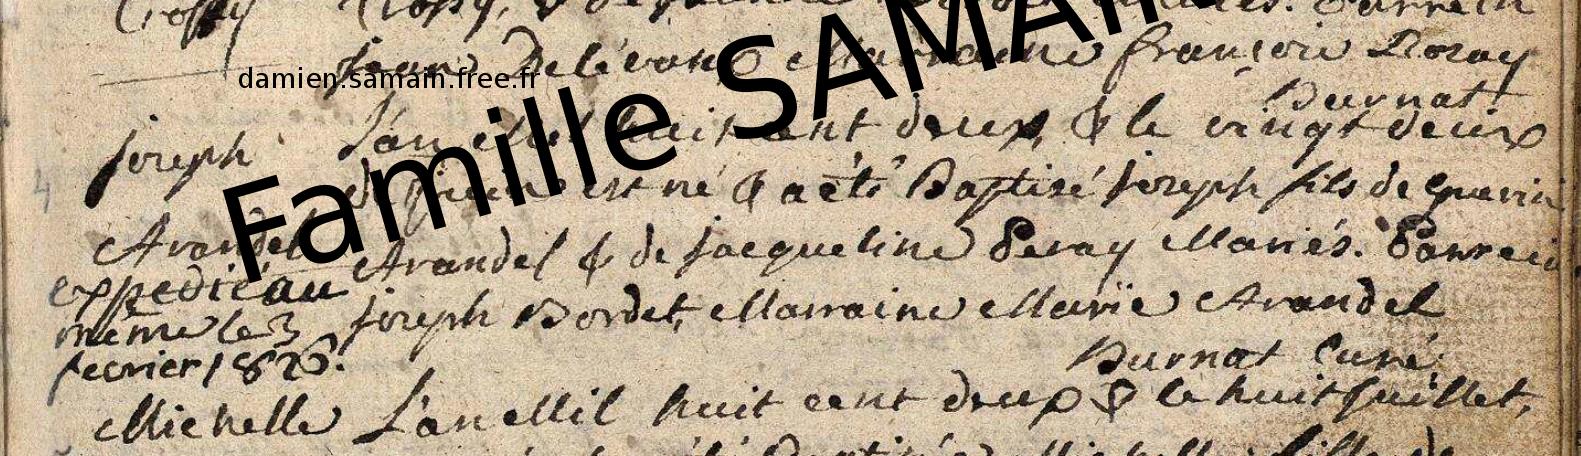 Jean Delévaux Marraine françoise Dozay
damien.samain.free.fr
Famille SAMAIN
Burnat
Joseph L'an Mil huit cent deux, & le vingt deux
de Juin est né & a été Baptisé Joseph fils de Guerin
Arandel Arandel & de Jacqueline Peray Mariés. Parrein
expedié au
même le 3 Joseph Bordet, Marraine Marie Arandel
fevrier 1826. Burnat Curé.
Michelle L'an Mil huit cent deux & le huit Juillet,